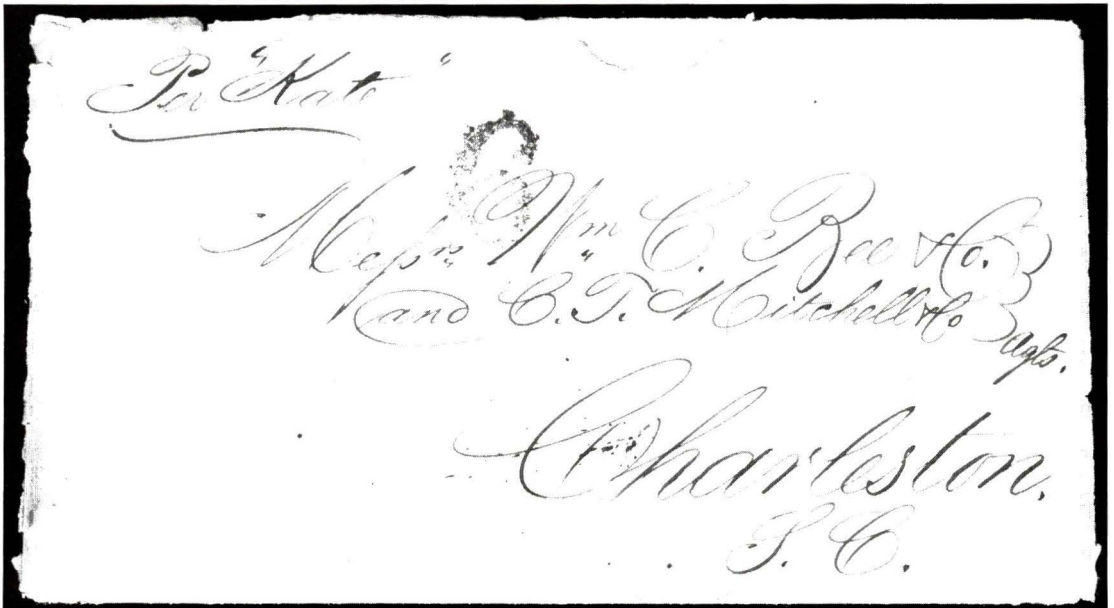 Per "Kate"
6
Messrs. Wm. C. Bee & Co.
and C. T. Mitchell & Co Agts.
Charleston.
S. C.